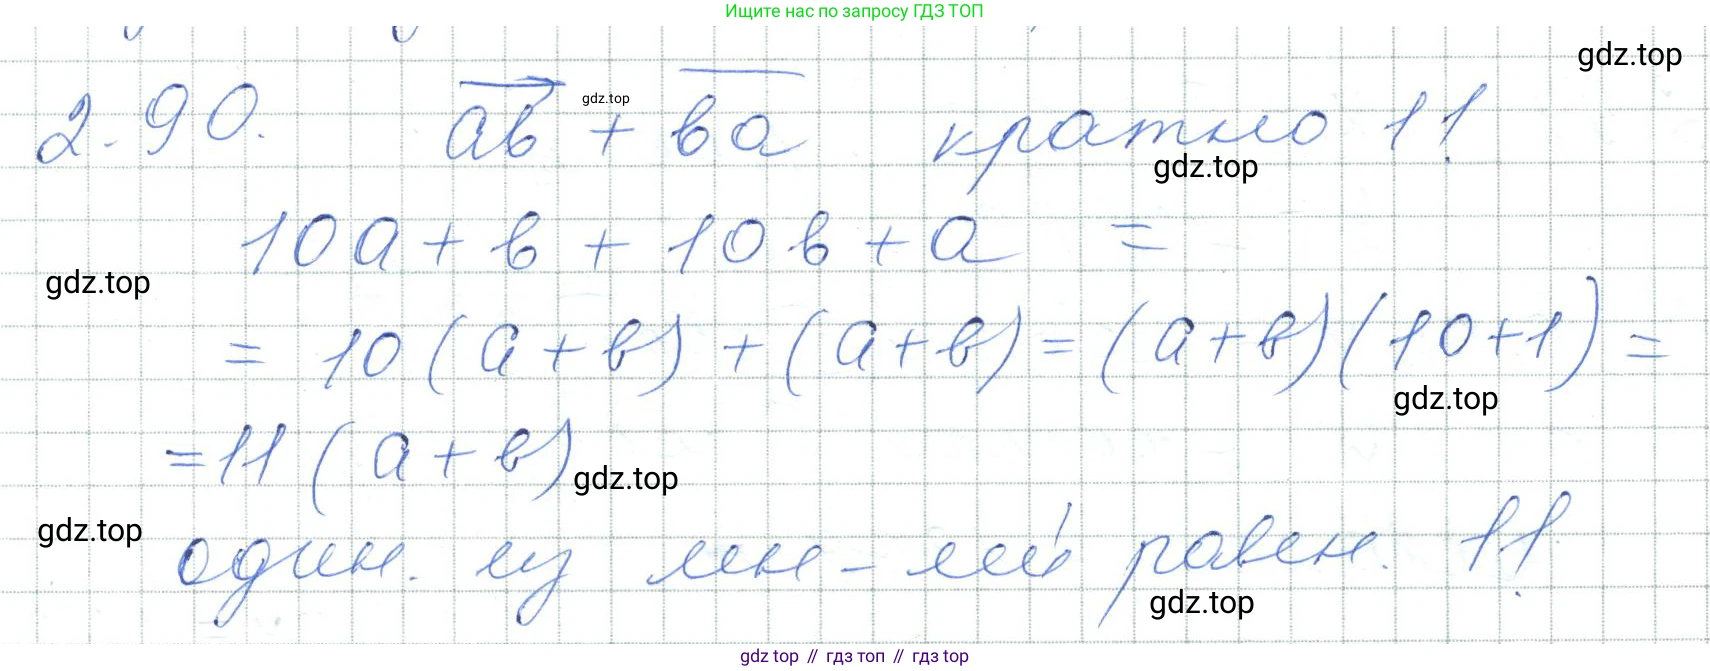 Ищите нас по запросу ГДЗ ТОП
gdz.top
2.90. ab + ba кратно 11
gdz.top
gdz.top
10a + b + 10b + a =
gdz.top
= 10(a+b) + (a+b) = (a+b)(10+1) =
gdz.top
= 11(a+b)
gdz.top
gdz.top
один. из мн-лей равен. 11
gdz.top
gdz top // гдз топ // гдз top